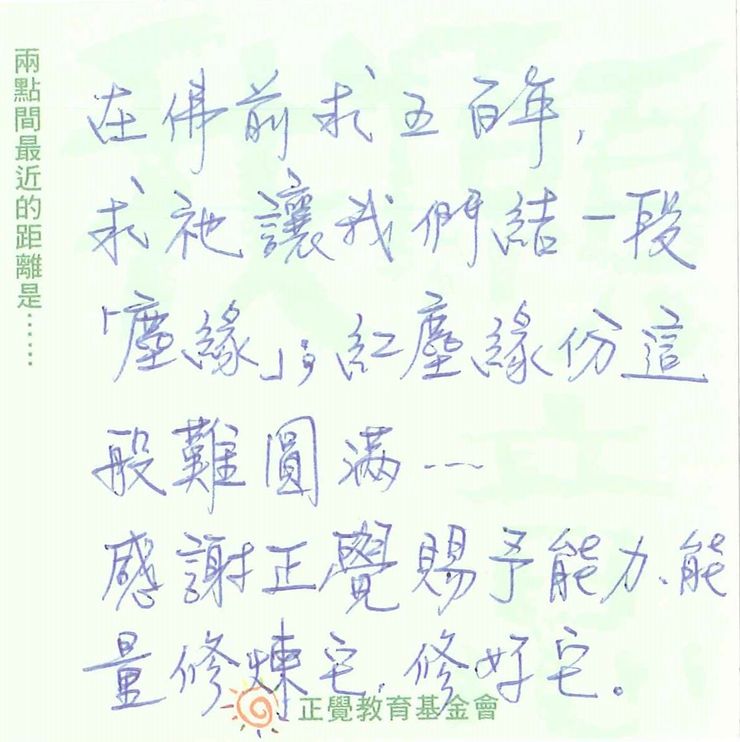 兩點間最近的距離是……
在佛前求五百年,
求祂讓我們結一段
「塵緣」;紅塵緣份這
般難圓滿……
感謝正覺賜予能力、能
量修煉它,修好它。
正覺教育基金會